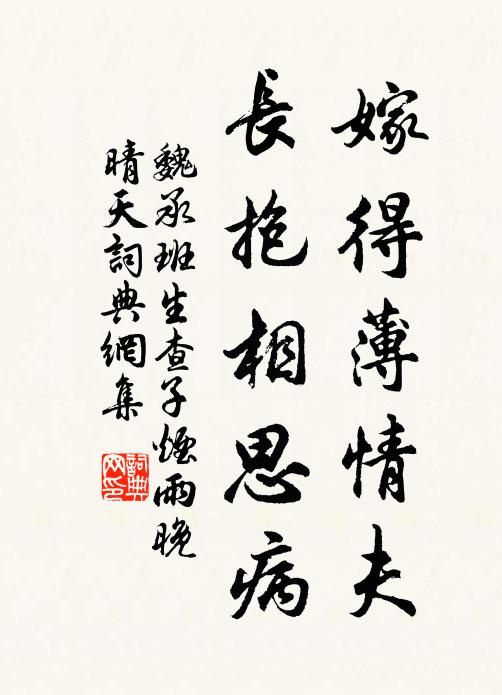 嫁得薄情夫
長抱相思病
魏承班生查子煙雨晚
晴天詞典網集
詞典
网印